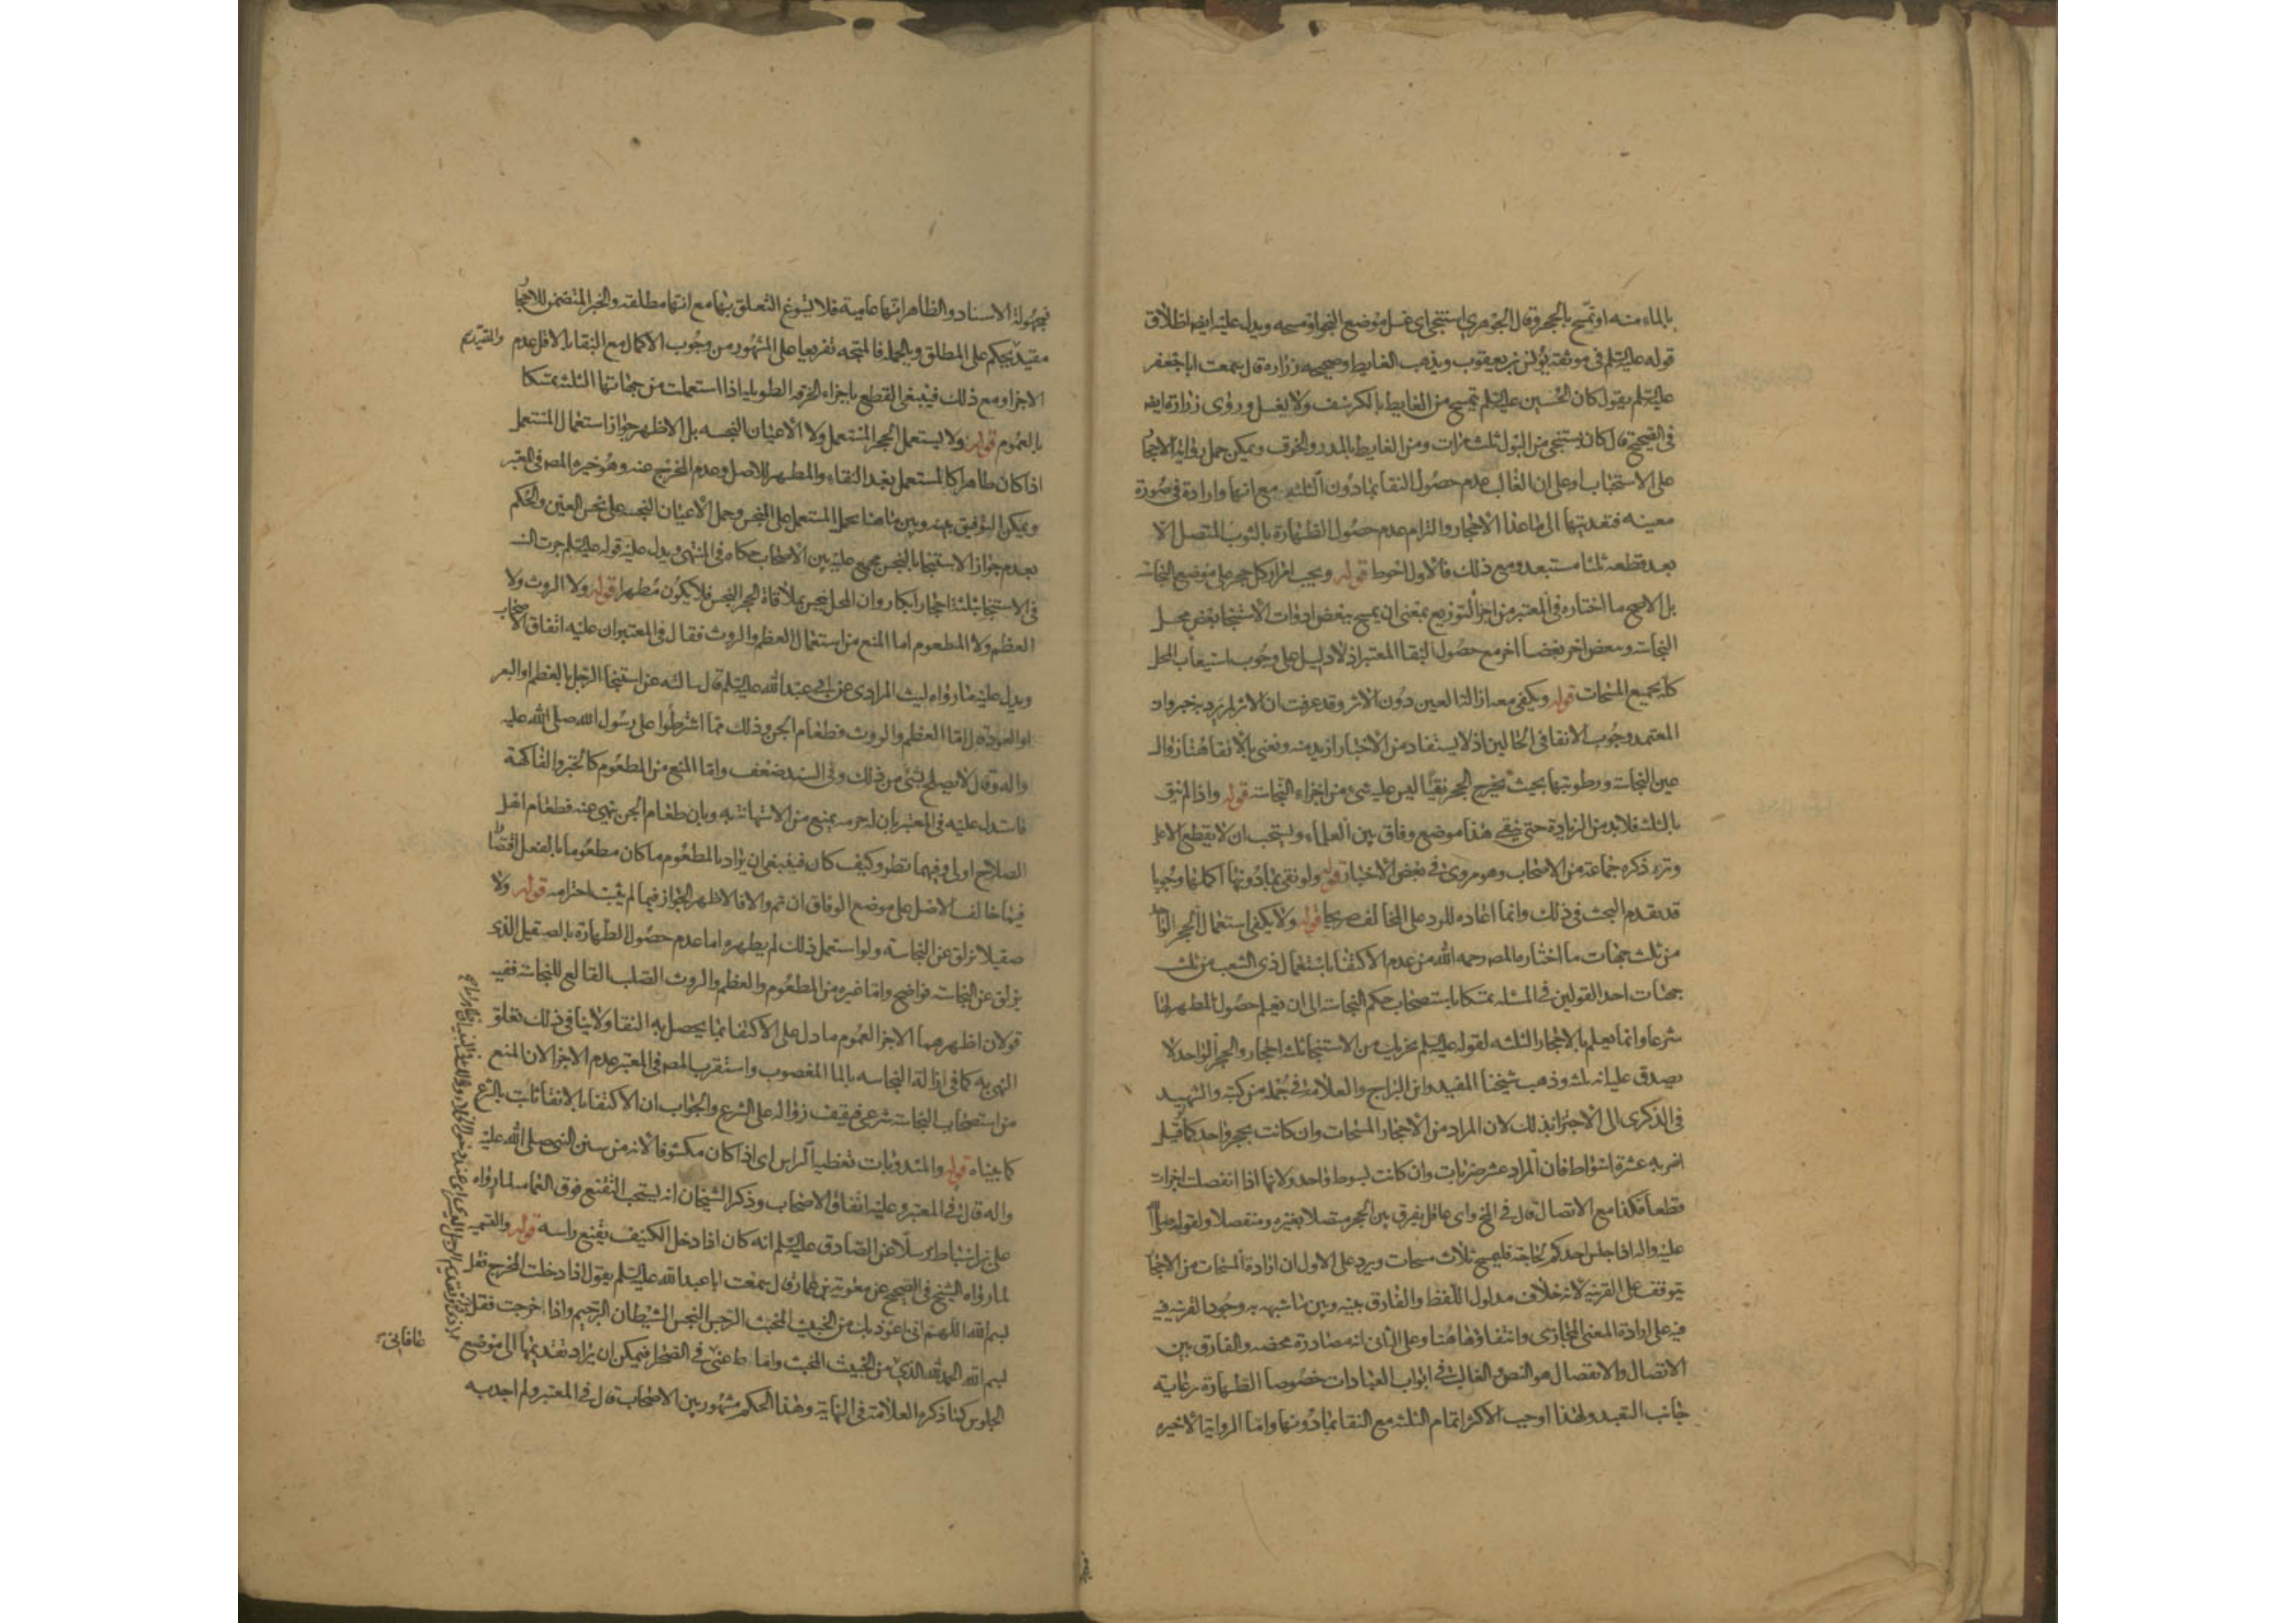 بالماء منه او تمسح بالحجر وقال الجوهري استنجى اى غسل موضع النجو او مسحه ويدل عليه ايضا اطلاق
قوله عليه السلم فى موثقة يونس بن يعقوب ويذهب الغايط وصحيحه زراره قال سمعت ابا جعفر
عليه السلم يقول كان الحسين عليه السلم يتمسح من الغايط بالكرسف ولا يغسل وروى زرارة ايضا
فى الصحيح قال كان يستنجى من البول ثلث مرات ومن الغايط بالمدر والخرق ويمكن حمل رواية الاحجا
على الاستحباب او على ان الغالب عدم حصول النقا بما دون الثلثه مع انها واردة فى صورة
معينه فتعديتها الى ما عدا الاحجار والتزام عدم حصول الطهارة بالثوب المتصل الا
بعد قطعه ثلثا مستبعد ومع ذلك فالاول احوط قوله ويجب امرار كل حجر على موضع النجاسة
بل الاصح ما اختاره فى المعتبر من اجزا التوزيع بمعنى ان يمسح ببعض ادوات الاستنجا بعض محل
النجاسة وببعض اخر بعضا اخر مع حصول النقا المعتبر اذ لا دليل على وجوب استيعاب المحل
كله بجميع المسحات قوله ويكفى معه ازالة العين دون الاثر وقد عرفت ان الاثر لم يرد به خبر وان
المعتمد وجوب الانقا فى الحالين اذ لا يستفاد من الاخبار ازيد منه ونعنى بالانقا هنا زوال
عين النجاسة ورطوبتها بحيث يخرج الحجر نقيا ليس عليه شئ من اجزاء النجاسة قوله واذا لم ينق
بالثلثه فلا بد من الزيادة حتى ينقى هذا موضع وفاق بين العلماء ويستحب ان لا يقطع الا على
وتر ذكره جماعة من الاصحاب وهو مروى فى بعض الاخبار قوله ولو نقى بما دونها اكملها وجوبا
قد تقدم البحث فى ذلك وانما اعاده للرد على المخالف صريحا قوله ولا يكفى استعمال الحجر الواحد
من ثلث جهات ما اختاره المصـ رحمه الله من عدم الاكتفا باستعمال ذى الشعب من ثلث
جهات احد القولين فى المسئلة تمسكا باستصحاب حكم النجاسة الى ان يعلم حصول المطهر لها
شرعا وانما يعلم بالاحجار الثلثه لقوله عليه السلم يجزيك من الاستنجا ثلثه احجار والحجر الواحد لا
يصدق عليه انه ثلثة وذهب شيخنا المفيد وابن البراج والعلامة فى جمله من كتبه والشهيد
فى الذكرى الى الاجتزا بذلك لان المراد من الاحجار المسحات وان كانت بحجر واحد كما لو قيل
اضربه عشرة اسواط فان المراد عشر ضربات وان كانت بسوط واحد ولانها اذا انفصلت اجزات
قطعا فكذا مع الاتصال قال فى المخ واى عاقل يفرق بين الحجر متصلا بغيره ومنفصلا ولقوله صلى الله
عليه واله اذا جلس احدكم لحاجته فليمسح ثلاث مسحات ويرد على الاول ان ارادة المسحات من الاحجا
يتوقف على القرينه لانه خلاف مدلول اللفظ والفارق بينه وبين ما شبهه به وجود القرينه فيه
فيه على ارادة المعنى المجازى وانتفاؤها هنا وعلى الثانى انه مصادرة محضه والفارق بين
الاتصال والانفصال هو النص والغالب فى ابواب العبادات خصوصا الطهارة رعاية
جانب التعبد ولهذا اوجب الاكثر اتمام الثلثه مع النقا بما دونها واما الرواية الاخيره
فمجهولة الاسناد والظاهر انها عامية فلا يسوغ التعلق بها مع انها مطلقه والخبر المتضمن للاحجا
مقيد يحكم على المطلق وبالجمله فالمتجه تفريعا على المشهور من وجوب الاكمال مع النقا بالاقل عدم
والمقيد
الاجزا ومع ذلك فينبغى القطع باجزاء الخرقه الطويله اذا استعملت من جهاتها الثلث تمسكا
بالعموم قوله ولا يستعمل الحجر المستعمل ولا الاعيان النجسه بل الاظهر جواز استعمال المستعمل
اذا كان طاهرا كالمستعمل بعد النقاء والمطهر للاصل وعدم المخرج عنه وهو خيرة المصـ فى المعتبر
ويمكن التوفيق بينه وبين ما هنا بحمل المستعمل على النجس وحمل الاعيان النجسه على نجس العين والحكم
بعدم جواز الاستنجا بالنجس مجمع عليه بين الاصحاب حكاه فى المنتهى ويدل عليه قوله عليه السلم جرت السنه
فى الاستنجا بثلثة احجار ابكار وان المحل ينجس بملاقاة الحجر النجس فلا يكون مطهرا قوله ولا الروث ولا
العظم ولا المطعوم اما المنع من استعمال العظم والروث فقال فى المعتبر ان عليه اتفاق الاصحاب
ويدل عليه ما رواه ليث المرادى عن ابى عبد الله عليه السلم قال سالته عن استنجا الرجل بالعظم او البعر
او العود قال اما العظم والروث فطعام الجن وذلك مما اشترطوا على رسول الله صلى الله عليه
واله وقال لا يصلح بشئ من ذلك وفى السند ضعف واما المنع من المطعوم كالخبز والفاكهة
فاستدل عليه فى المعتبر بان له حرمه يمنع من الاستهانة به وبان طعام الجن نهى عنه فطعام اهل
الصلاح اولى وفيهما نظر وكيف كان فينبغى ان يراد بالمطعوم ما كان مطعوما بالفعل اقتصارا
فيما خالف الاصل على موضع الوفاق ان تم والا فالاظهر الجواز فيما لم يثبت احترامه قوله ولا
صقيلا يزلق عن النجاسه ولو استعمل ذلك لم يطهره اما عدم حصول الطهارة بالصقيل الذى
يزلق عن النجاسة فواضح واما غيره من المطعوم والعظم والروث الصلب القالع للنجاسة ففيه
قولان اظهرهما الاجزا لعموم ما دل على الاكتفا بما يحصل به النقا ولا ينافى ذلك تعلق
النهى به كما فى ازالة النجاسه بالما المغصوب واستقرب المصـ فى المعتبر عدم الاجزا لان المنع
من استصحاب النجاسة شرعى فيقف زواله على الشرع والجواب ان الاكتفا بالانقا ثابت بالشرع
كما بيناه قوله والمندوبات تغطية الراس اى اذا كان مكشوفا لانه من سنن النبى صلى الله عليه
واله قال فى المعتبر وعليه اتفاق الاصحاب وذكر الشيخان انه يستحب التقنع فوق العمامه لما رواه
على بن اسباط مرسلا عن الصادق عليه السلم انه كان اذا دخل الكنيف يقنع راسه قوله والتسميه
لما رواه الشيخ فى الصحيح عن معوية بن عمار قال سمعت ابا عبد الله عليه السلم يقول اذا دخلت المخرج فقل
بسم الله اللهم انى اعوذ بك من الخبيث المخبث الرجس النجس الشيطان الرجيم واذا خرجت فقل
بسم الله الحمد لله الذى من الخبيث المخبث واماط عنى فى الصحرا فيمكن ان يراد تقديمها الى موضع
عافانى
الجلوس كما ذكره العلامة فى النهاية وهذا الحكم مشهور بين الاصحاب قال فى المعتبر ولم اجد به